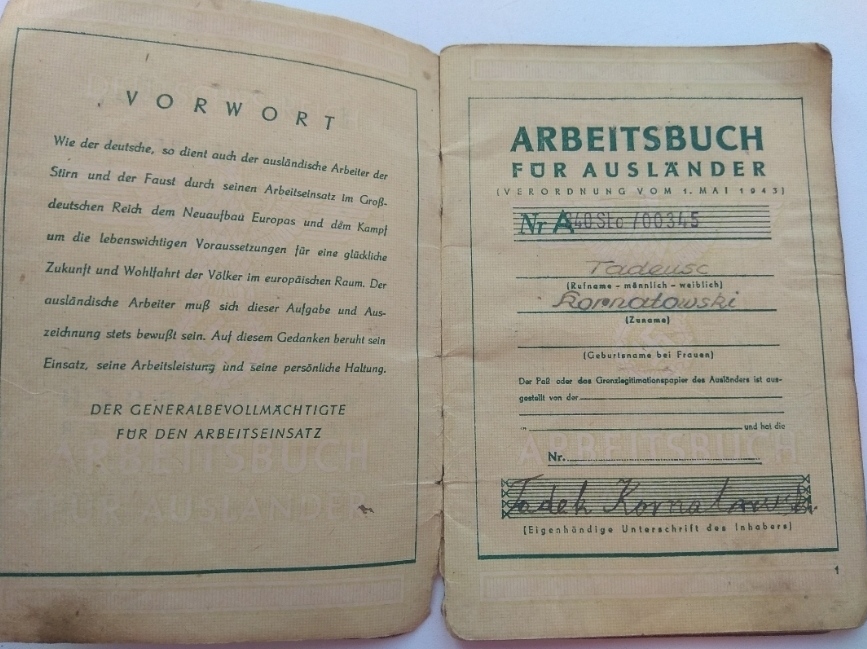 VORWORT
Wie der deutsche, so dient auch der ausländische Arbeiter der
Stirn und der Faust durch seinen Arbeitseinsatz im Groß-
deutschen Reich dem Neuaufbau Europas und dem Kampf
um die lebenswichtigen Voraussetzungen für eine glückliche
Zukunft und Wohlfahrt der Völker im europäischen Raum. Der
ausländische Arbeiter muß sich dieser Aufgabe und Aus-
zeichnung stets bewußt sein. Auf diesem Gedanken beruht sein
Einsatz, seine Arbeitsleistung und seine persönliche Haltung.
DER GENERALBEVOLLMÄCHTIGTE
FÜR DEN ARBEITSEINSATZ
ARBEITSBUCH
FÜR AUSLÄNDER
ARBEITSBUCH
FÜR AUSLÄNDER
(VERORDNUNG VOM 1. MAI 1943)
Nr A /00345
Tadeusc
(Rufname – männlich – weiblich)
Kornatowski
(Zuname)
(Geburtsname bei Frauen)
Der Paß oder das Grenzlegitimationspapier des Ausländers ist aus-
gestellt von der
und hat die
ARBEITSBUCH
Nr.
Tadek Kornatowski
(Eigenhändige Unterschrift des Inhabers)
1